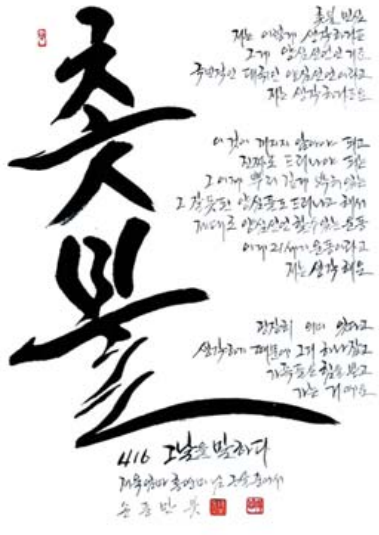 촛불
촛불 민심
저는 이렇게 생각하거든
그게 양심선언인거죠
국민적인 대국민 양심선언이라고
저는 생각하거든요
이것이 꺼지지 않아야 되고
진짜로 드러나야 되는
그 어떤 뿌리 깊게 박혀있는
그 잘못된 양심들도 드러나고 해서
제대로 양심선언 할 수 있는 운동
이게 21세기 운동이라고
저는 생각해요
굉장히 의미 있다고
생각하기 때문에 그거 하나 잡고
가족들은 힘을 받고
가는 거예요
416 그날을 말하다
엄마
손글씨